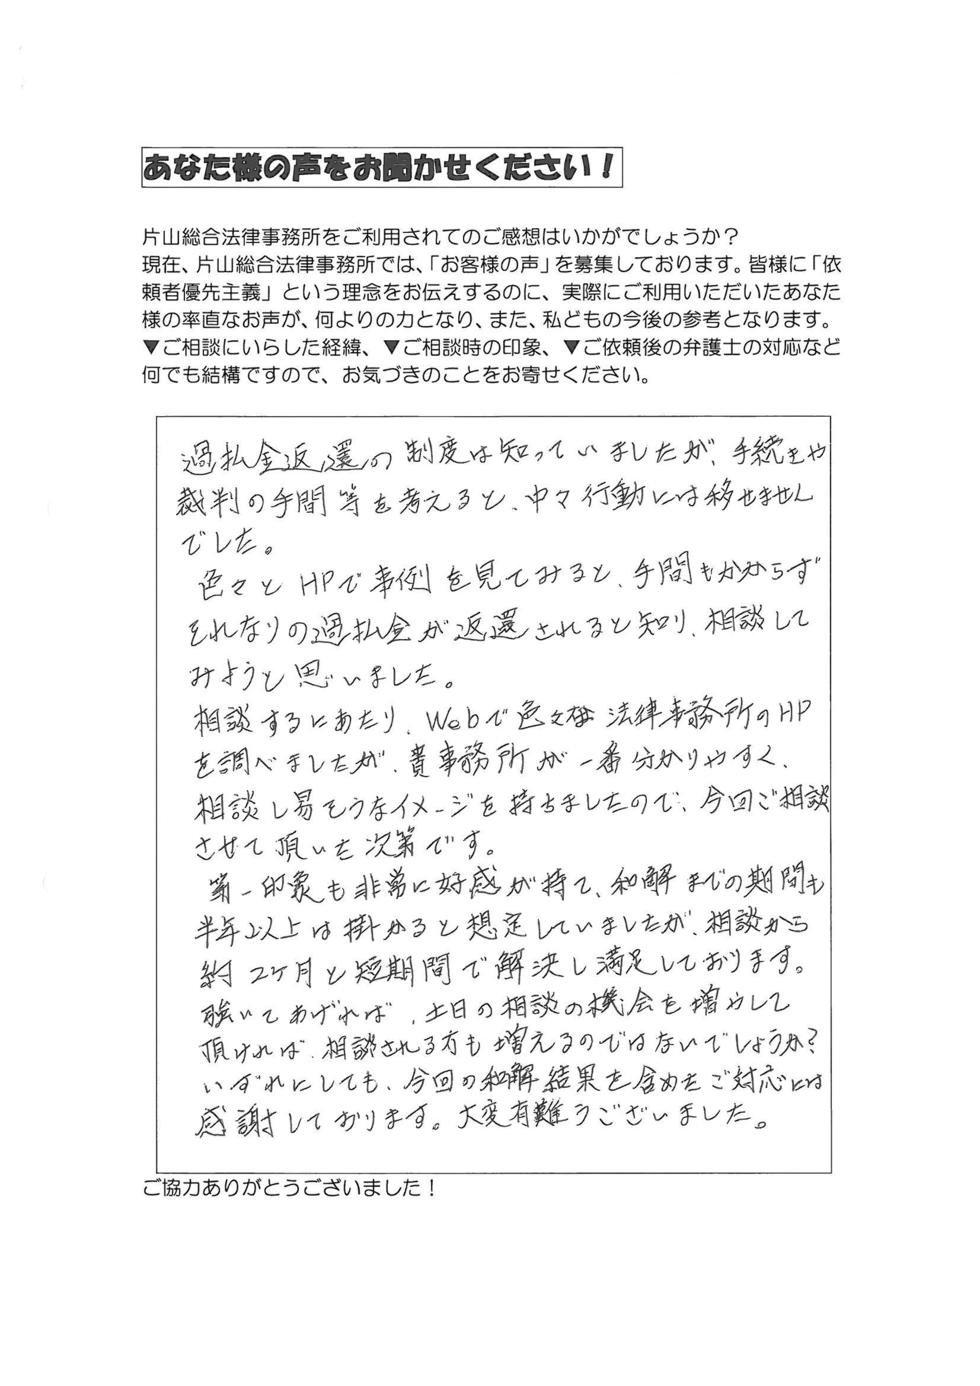 あなた様の声をお聞かせください！
片山総合法律事務所をご利用されてのご感想はいかがでしょうか？
現在、片山総合法律事務所では、「お客様の声」を募集しております。皆様に「依
頼者優先主義」という理念をお伝えするのに、実際にご利用いただいたあなた
様の率直なお声が、何よりの力となり、また、私どもの今後の参考となります。
▼ご相談にいらした経緯、▼ご相談時の印象、▼ご依頼後の弁護士の対応など
何でも結構ですので、お気づきのことをお寄せください。
過払金返還の制度は知っていましたが、手続きや
裁判の手間等を考えると、中々行動には移せません
でした。
色々とHPで事例を見てみると、手間もかからず
それなりの過払金が返還されると知り、相談して
みようと思いました。
相談するにあたり、Webで色々な法律事務所のHP
を調べましたが、貴事務所が一番分かりやすく、
相談し易そうなイメージを持ちましたので、今回ご相談
させて頂いた次第です。
第一印象も非常に好感が持て、和解までの期間も
半年以上は掛かると想定していましたが、相談から
約2ケ月と短期間で解決し満足しております。
強いてあげれば、土日の相談の機会を増やして
頂ければ、相談される方も増えるのではないでしょうか？
いずれにしても、今回の和解結果を含めたご対応には
感謝しております。大変有難うございました。
ご協力ありがとうございました！